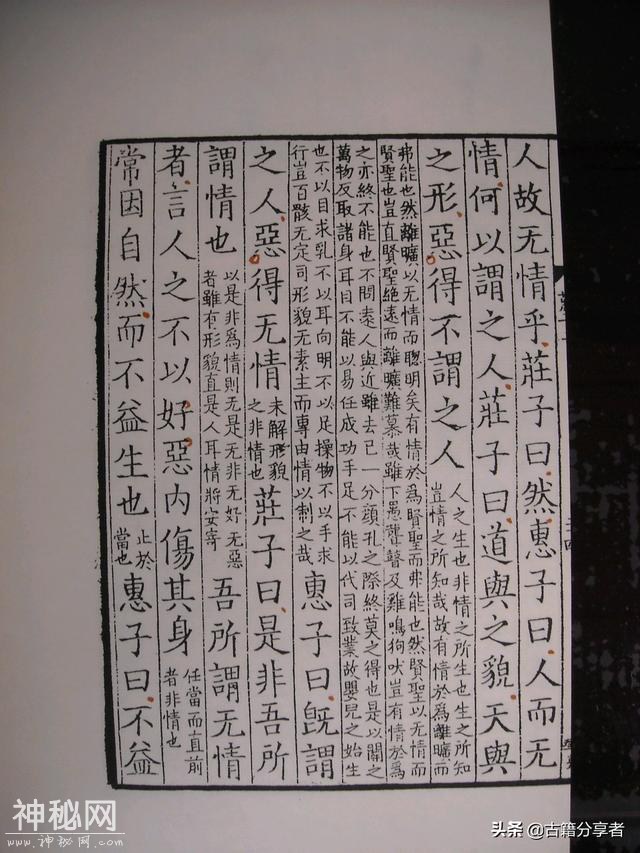 人故无情乎莊子曰然惠子曰人而无
情何以謂之人莊子曰道與之貌天與
之形惡得不謂之人
人之生也非情之所生也生之所知
豈情之所知哉故有情於爲離曠而
弗能也然離曠以无情而聰明矣有情於爲賢聖而弗能也然賢聖以无情而
賢聖也豈直賢聖絕遠而離曠難慕哉雖下愚聾瞽及雞鳴狗吠豈有情於爲
之亦終不能也不問遠之與近雖去已一分顔孔之際終莫之得也是以關之
萬物反取諸身耳目不能以易任成功手足不能以代司致業故嬰兒之始生
也不以目求乳不以耳向明不以足操物不以手求
行豈百骸无定司形貌无素主而專由情以制之哉
惠子曰旣謂
之人惡得无情
未解形貌
之非情也
莊子曰是非吾所
謂情也
以是非爲情則无是无非无好无惡
者雖有形貌直是人耳情將安寄
吾所謂无情
者言人之不以好惡內傷其身
任當而直前
者非情也
常因自然而不益生也
止於
當也
惠子曰不益
神秘网
www.神秘网.com
头条 @古籍分享者